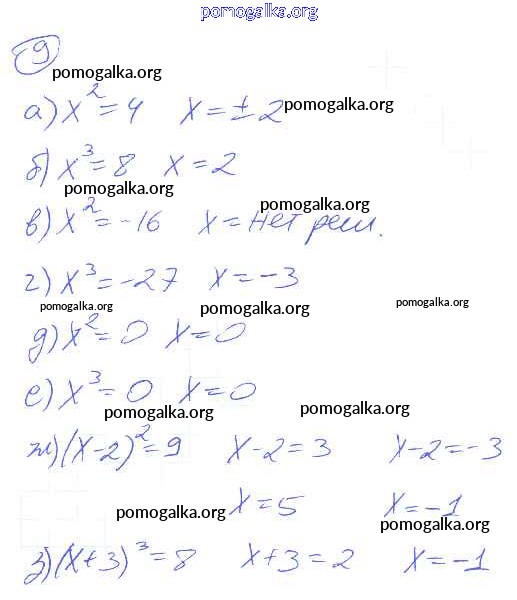 pomogalka.org
9
pomogalka.org
а) x² = 4 x = ± 2 pomogalka.org
б) x³ = 8 x = 2
pomogalka.org pomogalka.org
в) x² = -16 x = Нет реш.
г) x³ = -27 x = -3
pomogalka.org pomogalka.org pomogalka.org
д) x² = 0 x = 0
е) x³ = 0 x = 0
pomogalka.org pomogalka.org
ж) (x-2)² = 9 x-2 = 3 x-2 = -3
x = 5 x = -1
pomogalka.org pomogalka.org
з) (x+3)³ = 8 x+3 = 2 x = -1